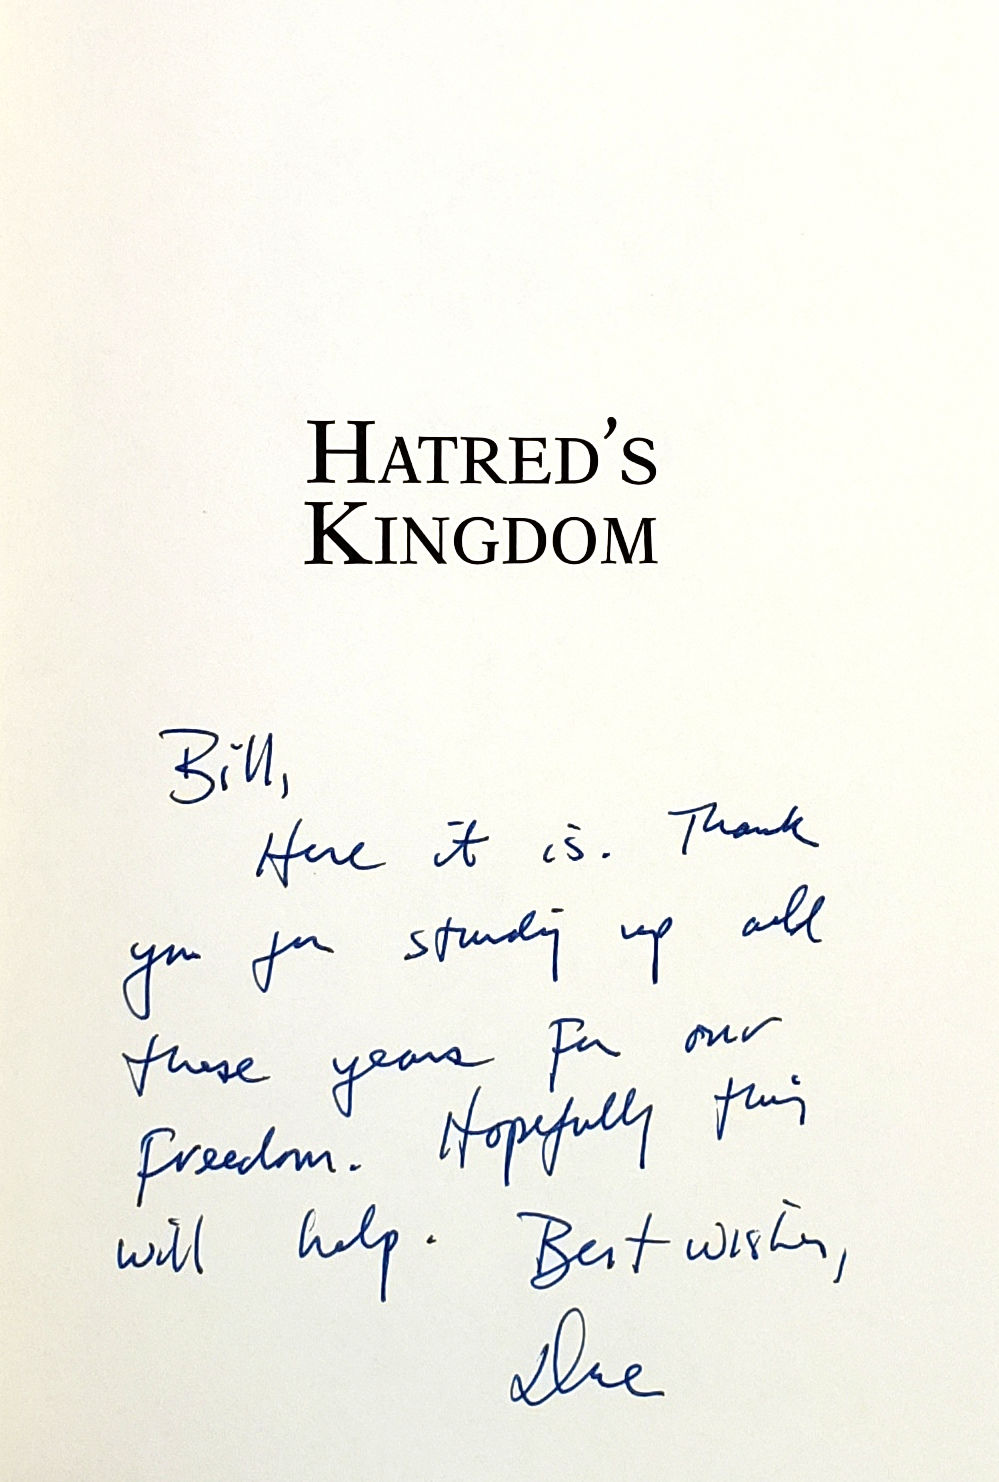 HATRED'S
KINGDOM
Bill,
Here it is. Thank
you for standing up all
these years for our
Freedom. Hopefully this
will help. Best wishes,